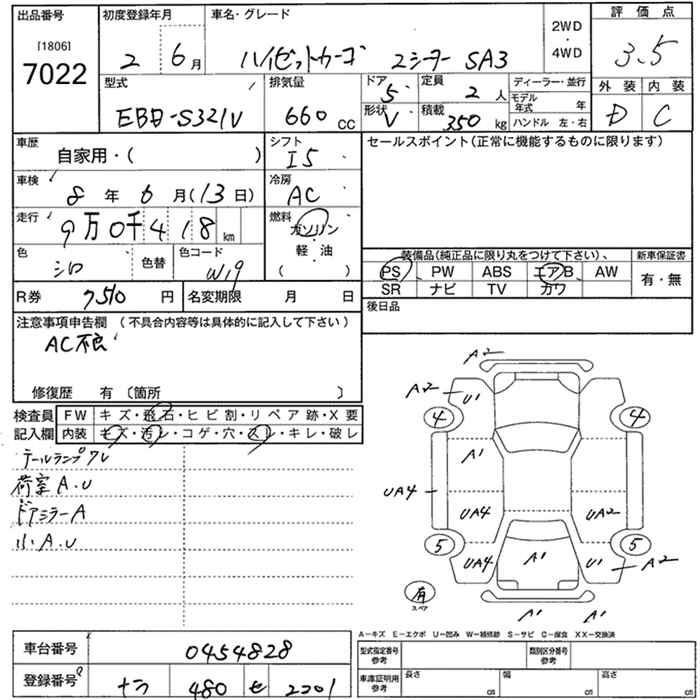 出品番号 初度登録年月 車名・グレード 2WD・4WD 評価点
[1806]
7022
2 6月 ハイゼットカーゴ 2シーター SA3 3.5
型式 排気量 ドア 5 定員 2人 ディーラー・並行 外装 内装
モデル年式 年
EBD-S321V 660cc 形状 V 積載 350kg ハンドル 左・右 D C
車歴 シフト セールスポイント(正常に機能するものに限ります)
自家用・( ) I5
車検 冷房
8年 6月(13日) AC
走行 燃料
9万0千418km ガソリン・軽油
( )
色 色替 色コード
シロ W19
装備品(純正品に限り丸をつけて下さい)、 新車保証書
PS PW ABS エアB AW 有・無
SR ナビ TV カワ
R券 7510円 名変期限 月 日 後日品
注意事項申告欄 (不具合内容等は具体的に記入して下さい)
AC不良
修復歴 有〔箇所 〕
検査員 FW キズ・飛石・ヒビ割・リペア跡・X要
記入欄 内装 キズ・汚レ・コゲ・穴・スレ・キレ・破レ
テールランプワレ
荷室A.U
ドアミラーA
小A.U
A2
A2 U1
4 4
A1
UA4 UA4 UA2
5 5
UA4 A1 U1 A2
有
スペア
A1 A1
A−キズ E−エクボ U−凹み W−補修跡 S−サビ C−腐食 XX−交換済
車台番号 0454828
登録番号 ナラ 480 せ 2201
型式指定番号 参考 類別区分番号 参考
車庫証明用 参考 長さ cm 幅 cm 高さ cm